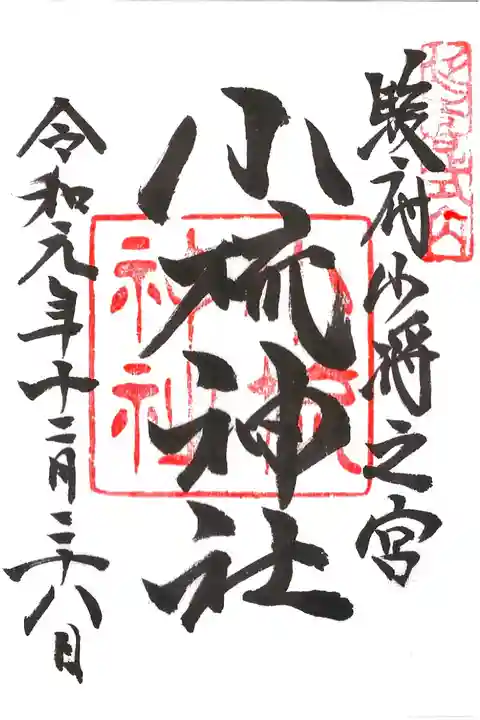 延喜式内
駿府少将之宮
小梳神社
小梳
神社
令和元年十二月二十八日